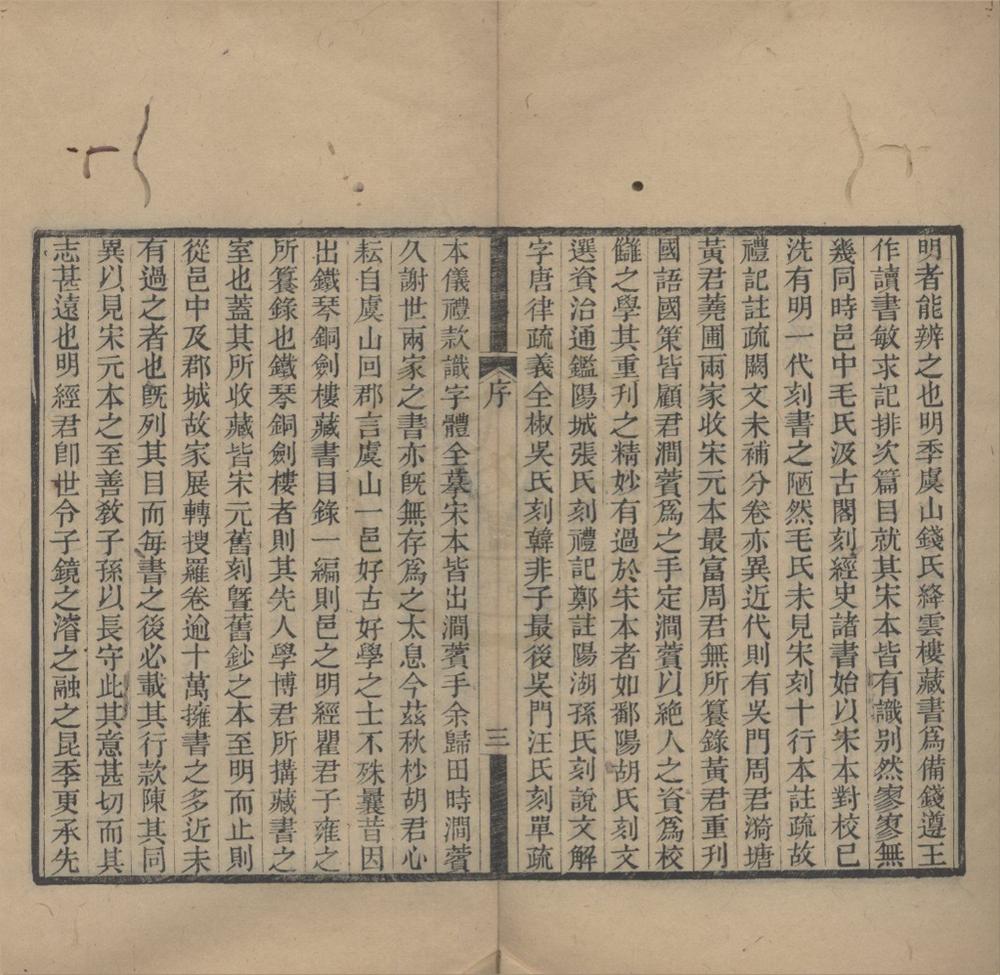 明者能辨之也明季虞山錢氏絳雲樓藏書爲備錢遵王
作讀書敏求記排次篇目就其宋本皆有識别然寥寥無
幾同時邑中毛氏汲古閣刻經史諸書始以宋本對校已
洗有明一代刻書之陋然毛氏未見宋刻十行本註疏故
禮記註疏闕文未補分卷亦異近代則有吳門周君漪塘
黃君蕘圃兩家收宋元本最富周君無所簒錄黃君重刊
國語國策皆顧君澗薲爲之手定澗薲以絶人之資爲校
讎之學其重刊之精妙有過於宋本者如鄱陽胡氏刻文
選資治通鑑陽城張氏刻禮記鄭註陽湖孫氏刻說文解
字唐律疏義全椒吳氏刻韓非子最後吳門汪氏刻單疏
序
三
本儀禮款識字體全摹宋本皆出澗薲手余歸田時澗薲
久謝世兩家之書亦旣無存爲之太息今茲秋杪胡君心
耘自虞山回郡言虞山一邑好古好學之士不殊曩昔因
出鐵琴銅劍樓藏書目錄一編則邑之明經瞿君子雍之
所簒錄也鐵琴銅劍樓者則其先人學博君所搆藏書之
室也蓋其所收藏皆宋元舊刻曁舊鈔之本至明而止則
從邑中及郡城故家展轉搜羅卷逾十萬擁書之多近未
有過之者也旣列其目而每書之後必載其行款陳其同
異以見宋元本之至善敎子孫以長守此其意甚切而其
志甚遠也明經君卽世令子鏡之濬之融之昆季更承先